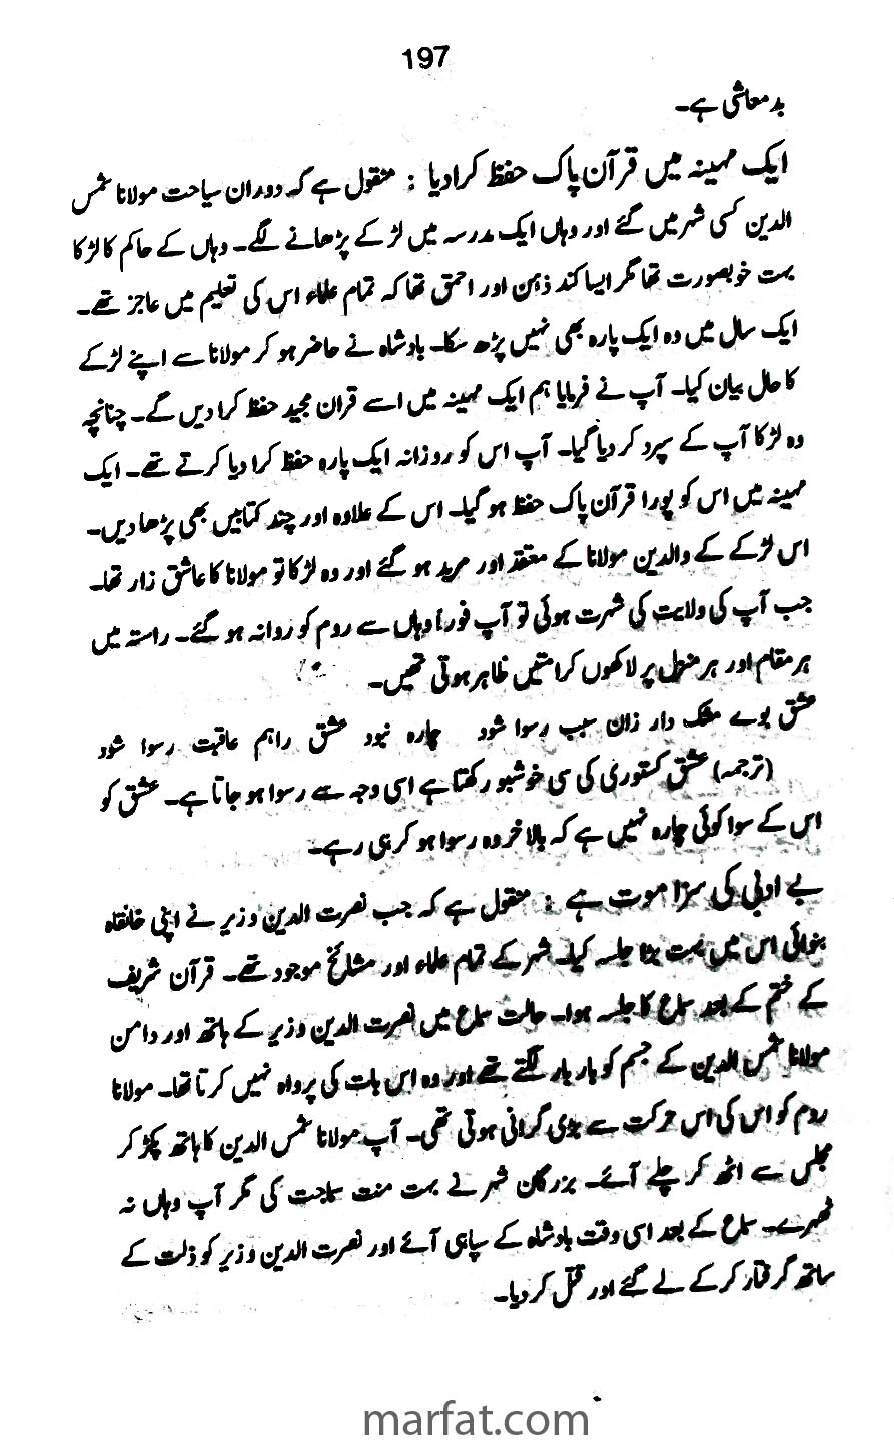 197
بدمعاشی ہے۔
ایک مہینہ میں قرآن پاک حفظ کرا دیا : منقول ہے کہ دوران سیاحت مولانا شمس
الدین کسی شہر میں گئے اور وہاں ایک مدرسہ میں لڑکے پڑھانے لگے۔ وہاں کے حاکم کا لڑکا
بہت خوبصورت تھا مگر ایسا کند ذہن اور احمق تھا کہ تمام علماء اس کی تعلیم میں عاجز تھے۔
ایک سال میں وہ ایک پارہ بھی نہیں پڑھ سکا۔ بادشاہ نے حاضر ہو کر مولانا سے اپنے لڑکے
کا حال بیان کیا۔ آپ نے فرمایا ہم ایک مہینہ میں اسے قران مجید حفظ کرا دیں گے۔ چنانچہ
وہ لڑکا آپ کے سپرد کر دیا گیا۔ آپ اس کو روزانہ ایک پارہ حفظ کرا دیا کرتے تھے۔ ایک
مہینہ میں اس کو پورا قرآن پاک حفظ ہو گیا۔ اس کے علاوہ اور چند کتابیں بھی پڑھا دیں۔
اس لڑکے کے والدین مولانا کے معتقد اور مرید ہو گئے اور وہ لڑکا تو مولانا کا عاشق زار تھا۔
جب آپ کی ولایت کی شہرت ہوئی تو آپ فوراً وہاں سے روم کو روانہ ہو گئے۔ راستہ میں
ہر مقام اور ہر منزل پر لاکھوں کرامتیں ظاہر ہوتی تھیں۔
عشق بوے مشک دار زان سبب رسوا شود چارہ نبود عشق راہم عاقبت رسوا شود
(ترجمہ) عشق کستوری کی سی خوشبو رکھتا ہے اسی وجہ سے رسوا ہو جاتا ہے۔ عشق کو
اس کے سوا کوئی چارہ نہیں ہے کہ بالاخر وہ رسوا ہو کر ہی رہے۔
بے ادبی کی سزا موت ہے : منقول ہے کہ جب نصرت الدین وزیر نے اپنی خانقاہ
بنوائی اس میں بہت بڑا جلسہ کیا۔ شہر کے تمام علماء اور مشائخ موجود تھے۔ قرآن شریف
کے ختم کے بعد سماع کا جلسہ ہوا۔ حالت سماع میں نصرت الدین وزیر کے ہاتھ اور دامن
مولانا شمس الدین کے جسم کو بار بار لگتے تھے اور وہ اس بات کی پرواہ نہیں کرتا تھا۔ مولانا
روم کو اس کی اس حرکت سے بڑی گرانی ہوتی تھی۔ آپ مولانا شمس الدین کا ہاتھ پکڑ کر
مجلس سے اٹھ کر چلے آئے۔ بزرگان شہر نے بہت منت سماجت کی مگر آپ وہاں نہ
ٹھہرے۔ سماع کے بعد اسی وقت بادشاہ کے سپاہی آئے اور نصرت الدین وزیر کو ذلت کے
ساتھ گرفتار کر کے لے گئے اور قتل کر دیا۔
marfat.com